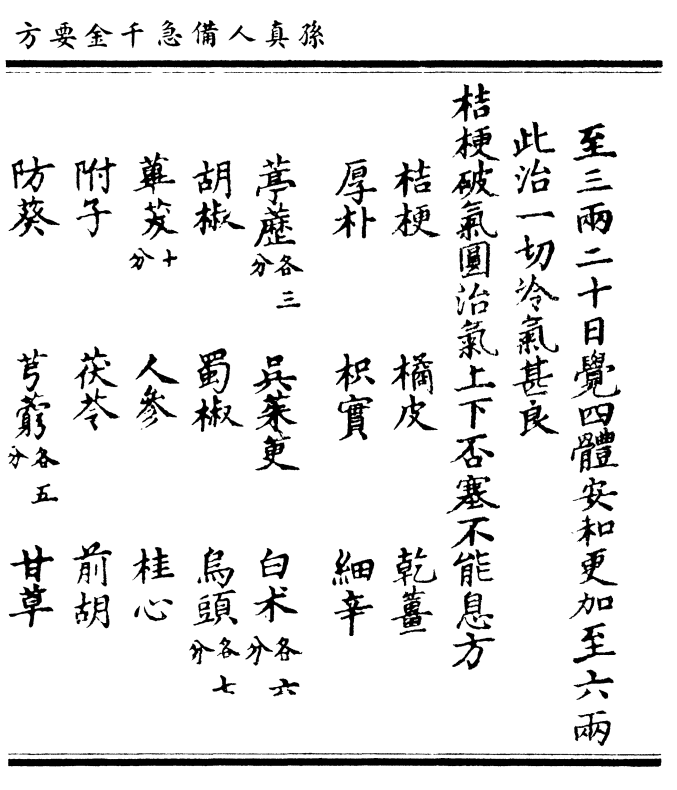 孫真人備急千金要方
至三兩二十日覺四體安和更加至六兩
此治一切冷氣甚良
桔梗破氣圓治氣上下否塞不能息方
桔梗 橘皮 乾薑
厚朴 枳實 細辛
葶藶各三分 吳茱萸 白术各六分
胡椒 蜀椒 烏頭各七分
蓽茇十分 人參 桂心
附子 茯苓 前胡
防葵 芎藭各五分 甘草